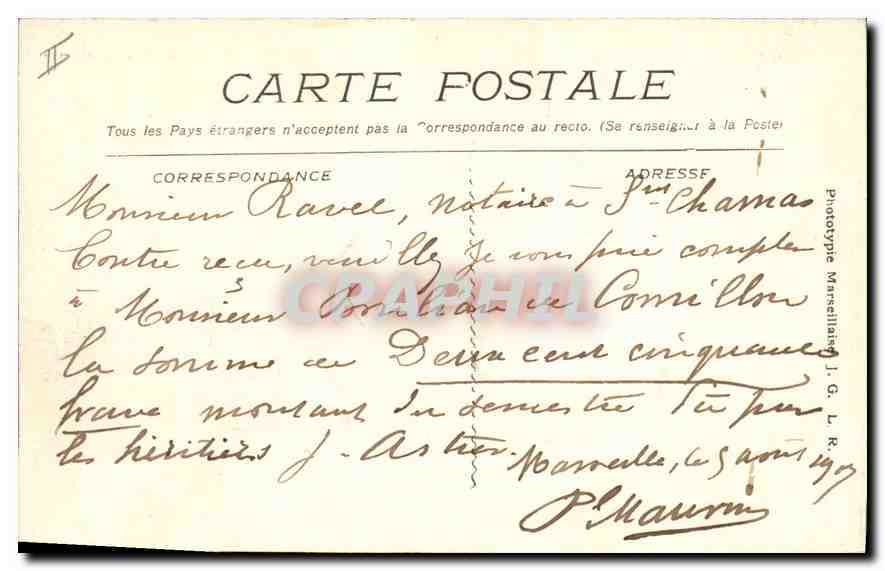 II
CARTE POSTALE
Tous les Pays étrangers n'acceptent pas la Correspondance au recto. (Se renseigner à la Poste)
CORRESPONDANCE
ADRESSE
Monsieur Ravel, notaire à St Chamas
Contre reçu, veuillez je vous prie compter
à Monsieur de Cornillon
la somme de Deux cent cinquante
francs montant du semestre dû par
les héritiers J. Astier.
Marseille, le 5 août 1907
P. Maurin
Phototypie Marseillaise J. G. L. R.
CPAPHIL